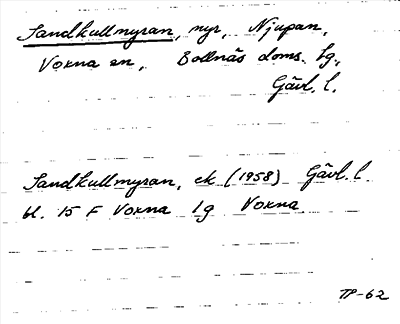 Sandkullmyran, myr, Njupan,
Voxna sn, Bollnäs doms. lg,
Gävl. l.
Sandkullmyran, ek (1958) Gävl. l
bl. 15 F Voxna lg Voxna
TP-62